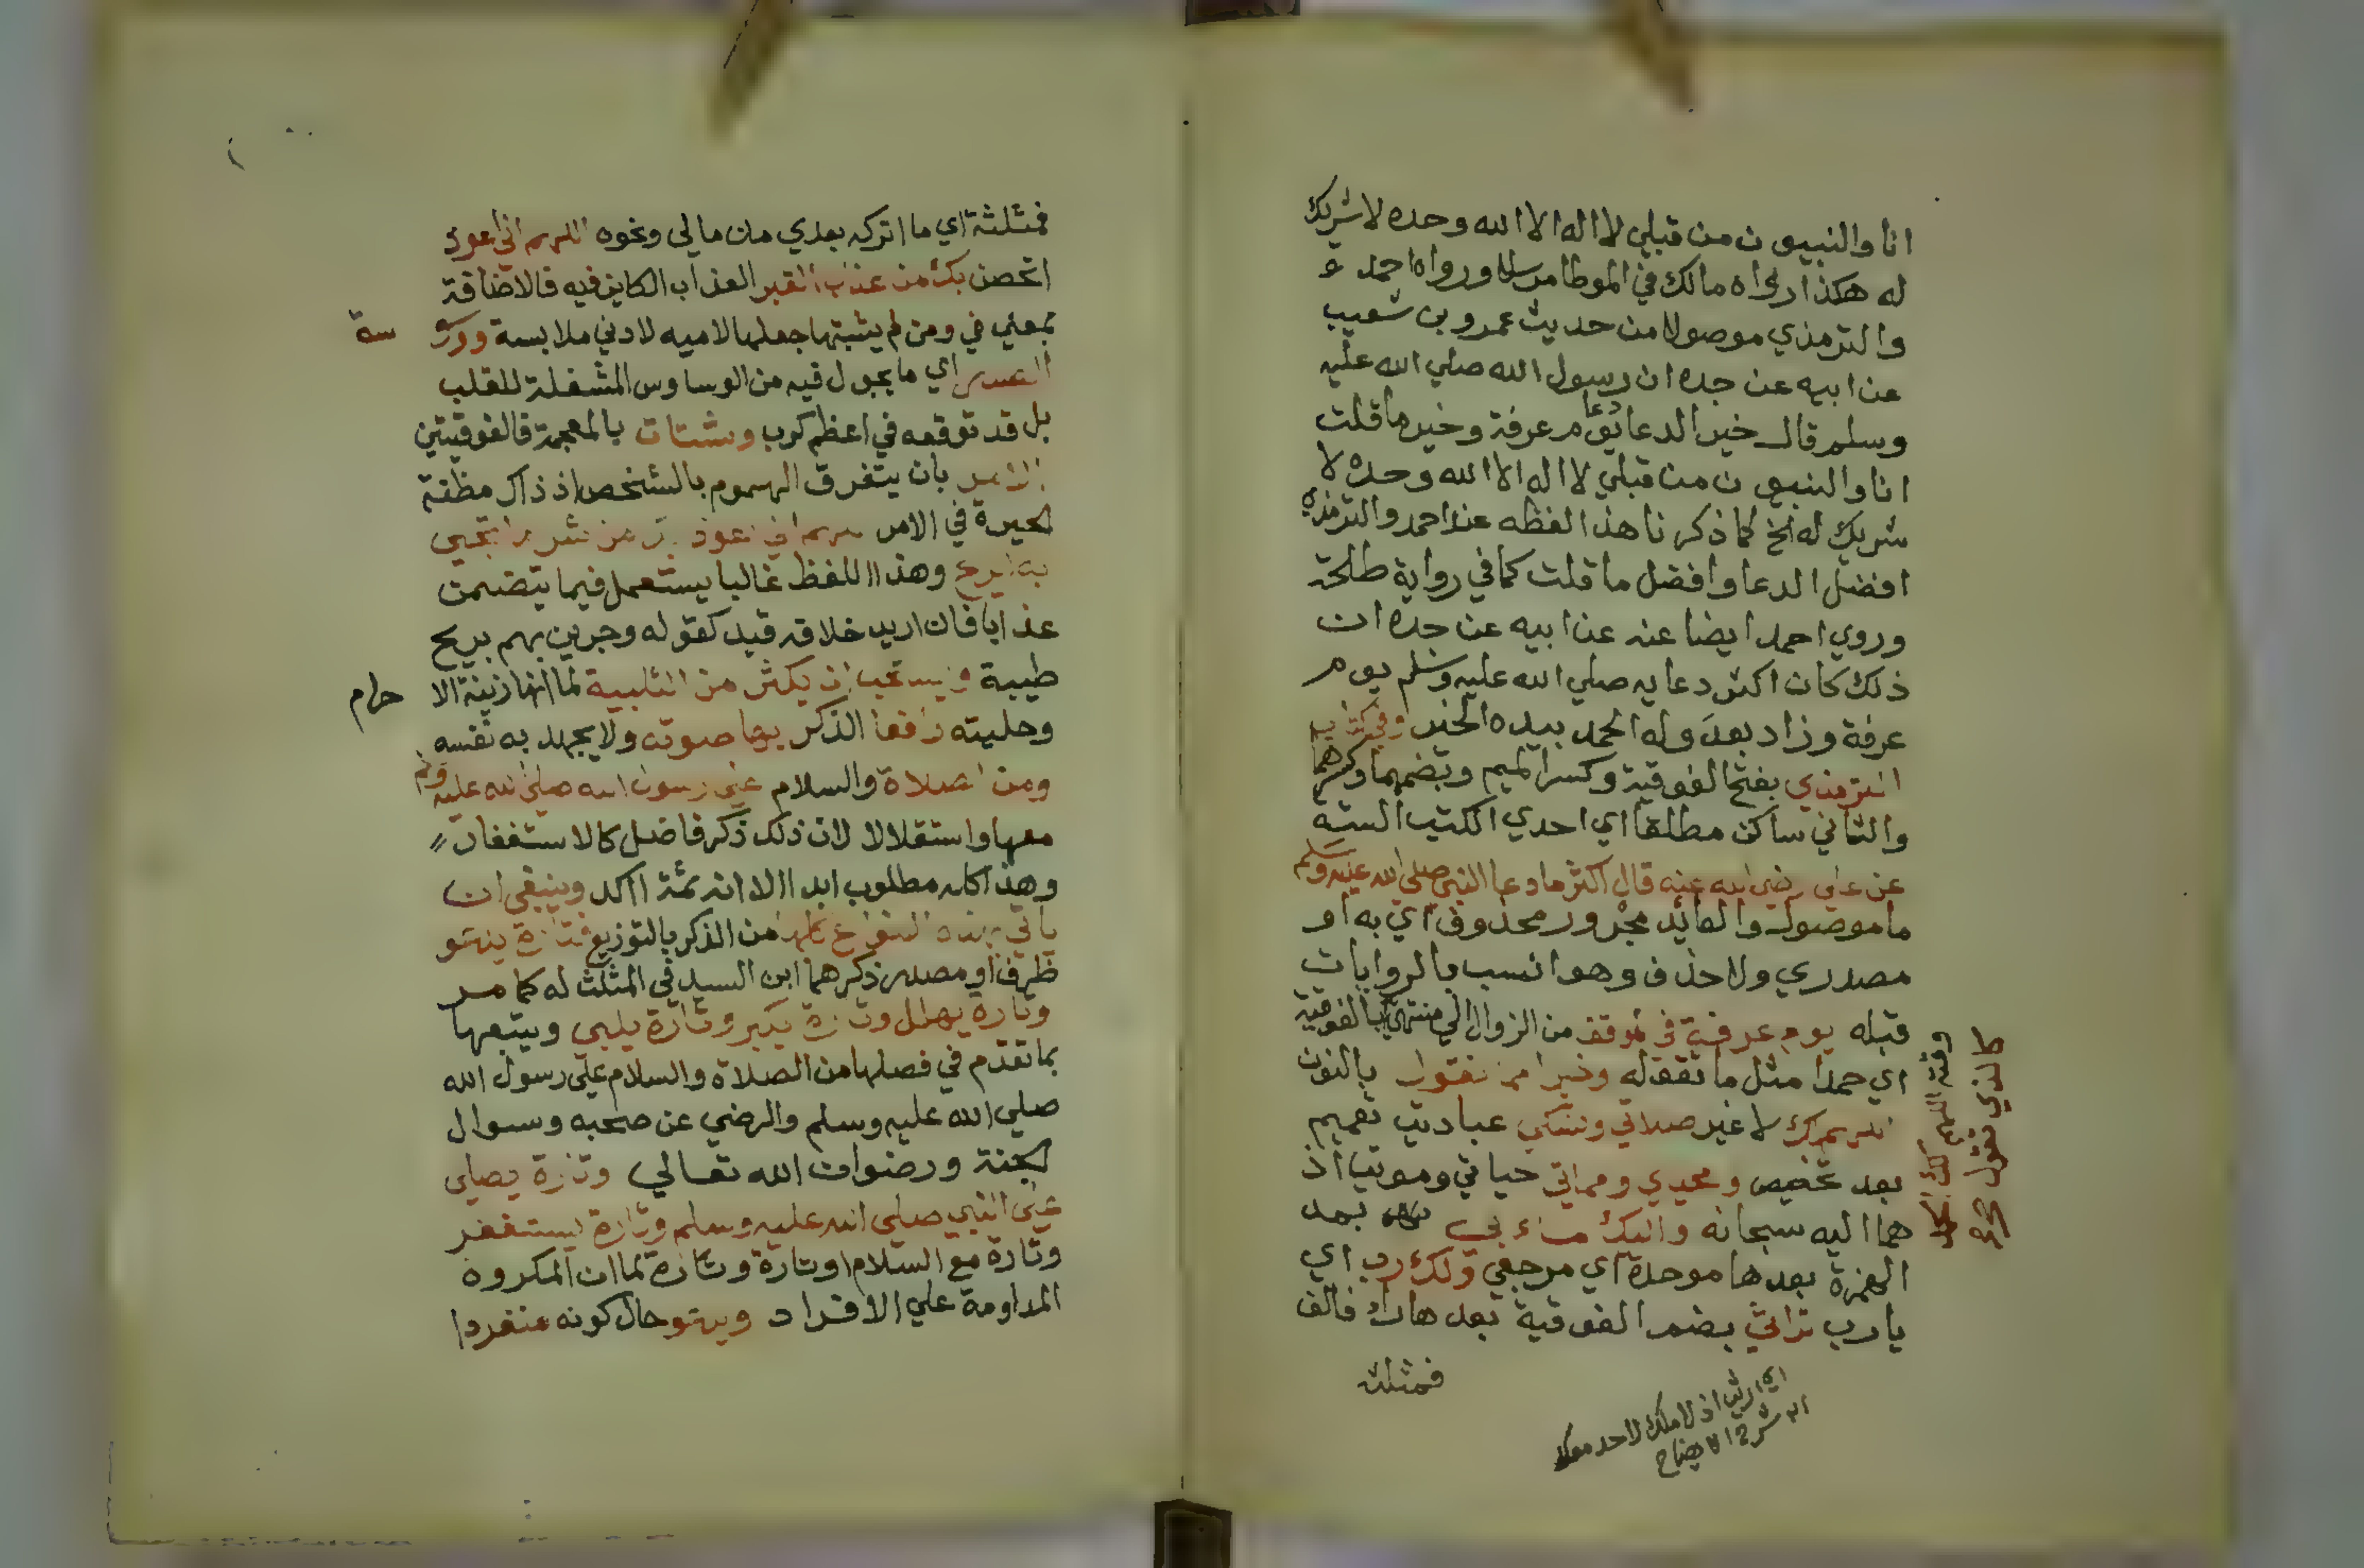 انا والنبيون من قبلي لا اله الا الله وحده لا شريك
له هكذا رواه مالك في الموطا مرسلا ورواه احمد
والترمذي موصولا من حديث عمرو بن شعيب
عن ابيه عن جده ان رسول الله صلي الله عليه
وسلم قال خير الدعا دعا يوم عرفة وخير ما قلت
انا والنبيون من قبلي لا اله الا الله وحده لا
شريك له الخ كما ذكرنا هذا لفظه عند احمد والترمذي
افضل الدعا وافضل ما قلت كما في رواية طلحة
وروي احمد ايضا عنه عن ابيه عن جده ان
ذلك كان اكثر دعايه صلي الله عليه وسلم يوم
عرفة وزاد بعد وله الحمد بيده الخير وفي كتاب
الترمذي بفتح الفوقية وكسر الميم وبضمهما وكسرهما
والثاني ساكن مطلقا اي احدي الكتب الستة
عن علي رضي الله عنه قال اكثر ما دعا النبي صلي الله عليه وسلم
ما موصول والعايد مجرور محذوف اي به او
مصدري ولا حذف وهو انسب بالروايات
قبله يوم عرفة في الموقف من الزوال الي منتهي بالفوقية
اي حمدا مثل ما تقوله وخيرا مما نقول بالنون
اللهم لك لا غير صلاتي ونسكي عبادتي تعميم
بعد تخصيص ومحيي ومماتي حياتي وموتي اذ
هما اليه سبحانه واليك مآبي بمد
الهمزة بعدها موحدة اي مرجعي ولك رب اي
يا رب تراثي بضم الفوقية بعدها راء فالف
فمثلثة
وقته اللهم لك الحمد
كالذي نقول
اي ارثي اذ لا ملك لاحد
شرح الايضاح
فمثلثة اي ما اتركه بعدي من مالي ونحوه اللهم اني اعوذ
اتحصن بك من عذاب القبر العذاب الكاين فيه فالاضافة
بمعني في ومن لم يثبتها جعلها لاميه لادني ملابسة ووسوسة
الصدر اي ما يجول فيه من الوساوس المشغلة للقلب
بل قد توقعه في اعظم كرب وشتات بالمعجمة فالفوقيتين
الامر بان يتفرق الهموم بالشخص اذ ذاك مظنة
الحيرة في الامر اللهم اني اعوذ بك من شر ما تجيي
به الريح وهذا اللفظ غالبا يستعمل فيما يتضمن
عذابا فان اريد خلافه قيد كقوله وجرين بهم بريح
طيبة ويستحب ان يكثر من التلبية لما انها زينة الاحرام
وحليته رافعا الذكر بها صوته ولا يجهد به نفسه
ومن الصلاة والسلام علي رسول الله صلي الله عليه وسلم
معها واستقلالا لان ذلك ذكر فاضل كالاستغفار
وهذا كله مطلوب ابدا الا انه ثمة اكد وينبغي ان
ياتي بهذه الانواع كلها من الذكر بالتوزيع فتارة ينصب
ظرف او مصدر ذكرهما ابن السيد في المثلث له كما مر
وتارة يهلل وتارة يكبر وتارة يلبي ويتبعها
بما تقدم في فصلها من الصلاة والسلام علي رسول الله
صلي الله عليه وسلم والرضي عن صحبه وسوال
الجنة ورضوان الله تعالي وتارة يصلي
علي النبي صلي الله عليه وسلم وتارة يستغفر
وتارة مع السلام وتارة وتارة لما ان المكروه
المداومة علي الافراد ويدعو حال كونه منفردا